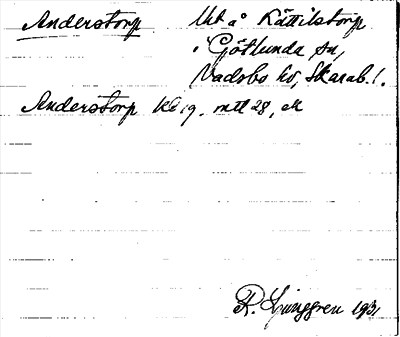 Anderstorp Ut å Kättilstorp
i Götlunda sn,
Vadsbo hd, Skarab. l.
Anderstorp mtl 28, ek
R. Ljunggren 1931